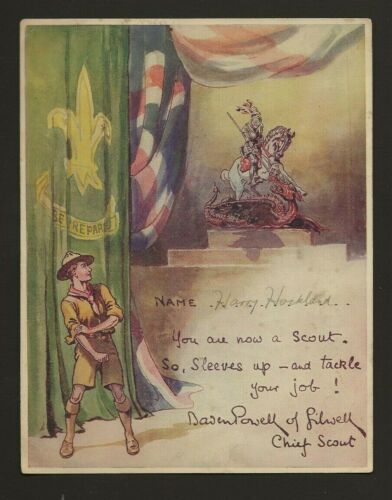 BE PREPARED
NAME Harry
You are now a Scout.
So, Sleeves up – and tackle
your job !
Baden Powell of Gilwell
Chief Scout